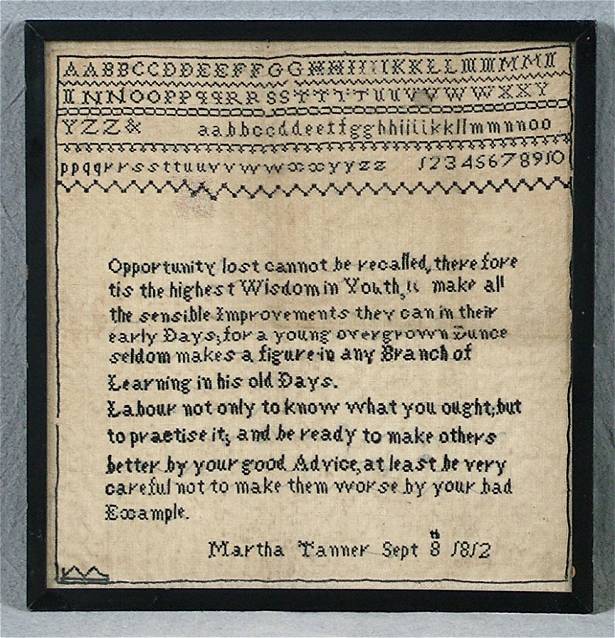 AABBCCDDEEFFGGHHIIIKKLLIIIIIMMII
IINNOOPPqqRRSSTTTTUUVVWWXXY
YZZ& aabbccddeeffgghhiiiikkllmmnnoo
ppqqrrssttuuvvwwxxyyzz 12345678910
Opportunity lost cannot be recalled, therefore
tis the highest Wisdom in Youth, make all
the sensible Improvements they can in their
early Days; for a young overgrown Dunce
seldom makes a figure in any Branch of
Learning in his old Days.
Labour not only to know what you ought; but
to practise it; and be ready to make others
better by your good Advice, at least be very
careful not to make them worse by your bad
Example.
Martha Tanner Sept 8th 1812